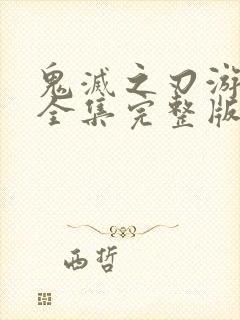 鬼滅之刃游
全集完整版
西哲